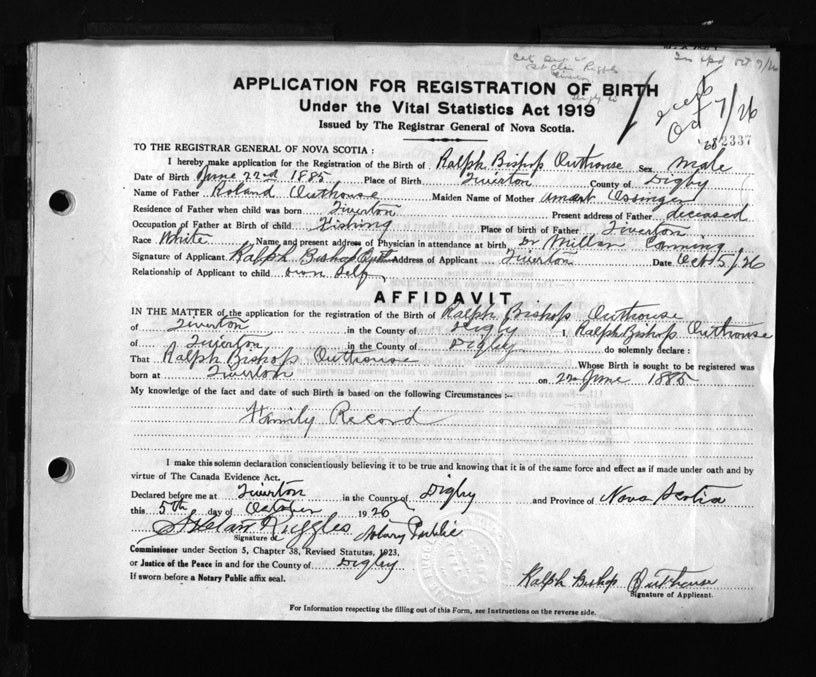 Oct 7/26
APPLICATION FOR REGISTRATION OF BIRTH
Under the Vital Statistics Act 1919
Issued by The Registrar General of Nova Scotia.
Oct 7/26
2337
TO THE REGISTRAR GENERAL OF NOVA SCOTIA :
I hereby make application for the Registration of the Birth of Ralph Bishop Outhouse Sex Male
Date of Birth June 22nd 1885 Place of Birth Tiverton County of Digby
Name of Father Roland Outhouse Maiden Name of Mother Ossinger
Residence of Father when child was born Tiverton Present address of Father deceased
Occupation of Father at Birth of child Fishing Place of birth of Father Tiverton
Race White Name and present address of Physician in attendance at birth Dr
Signature of Applicant Ralph Bishop Outh Address of Applicant Tiverton Date Oct 5/26
Relationship of Applicant to child own Self
AFFIDAVIT
IN THE MATTER of the application for the registration of the Birth of Ralph Bishop Outhouse
of Tiverton in the County of Digby I, Ralph Bishop Outhouse
of Tiverton in the County of Digby do solemnly declare :
That Ralph Bishop Outhouse Whose Birth is sought to be registered was
born at Tiverton on 22 June 1885
My knowledge of the fact and date of such Birth is based on the following Circumstances :–
Family Record
I make this solemn declaration conscientiously believing it to be true and knowing that it is of the same force and effect as if made under oath and by
virtue of The Canada Evidence Act.
Declared before me at Tiverton in the County of Digby and Province of Nova Scotia
this 5th day of October 1926
Ruggles Notary Public
Signature of
Commissioner under Section 5, Chapter 38, Revised Statutes, 1923.
or Justice of the Peace in and for the County of Digby
If sworn before a Notary Public affix seal.
Ralph Bishop Outhouse
Signature of Applicant.
For Information respecting the filling out of this Form, see Instructions on the reverse side.